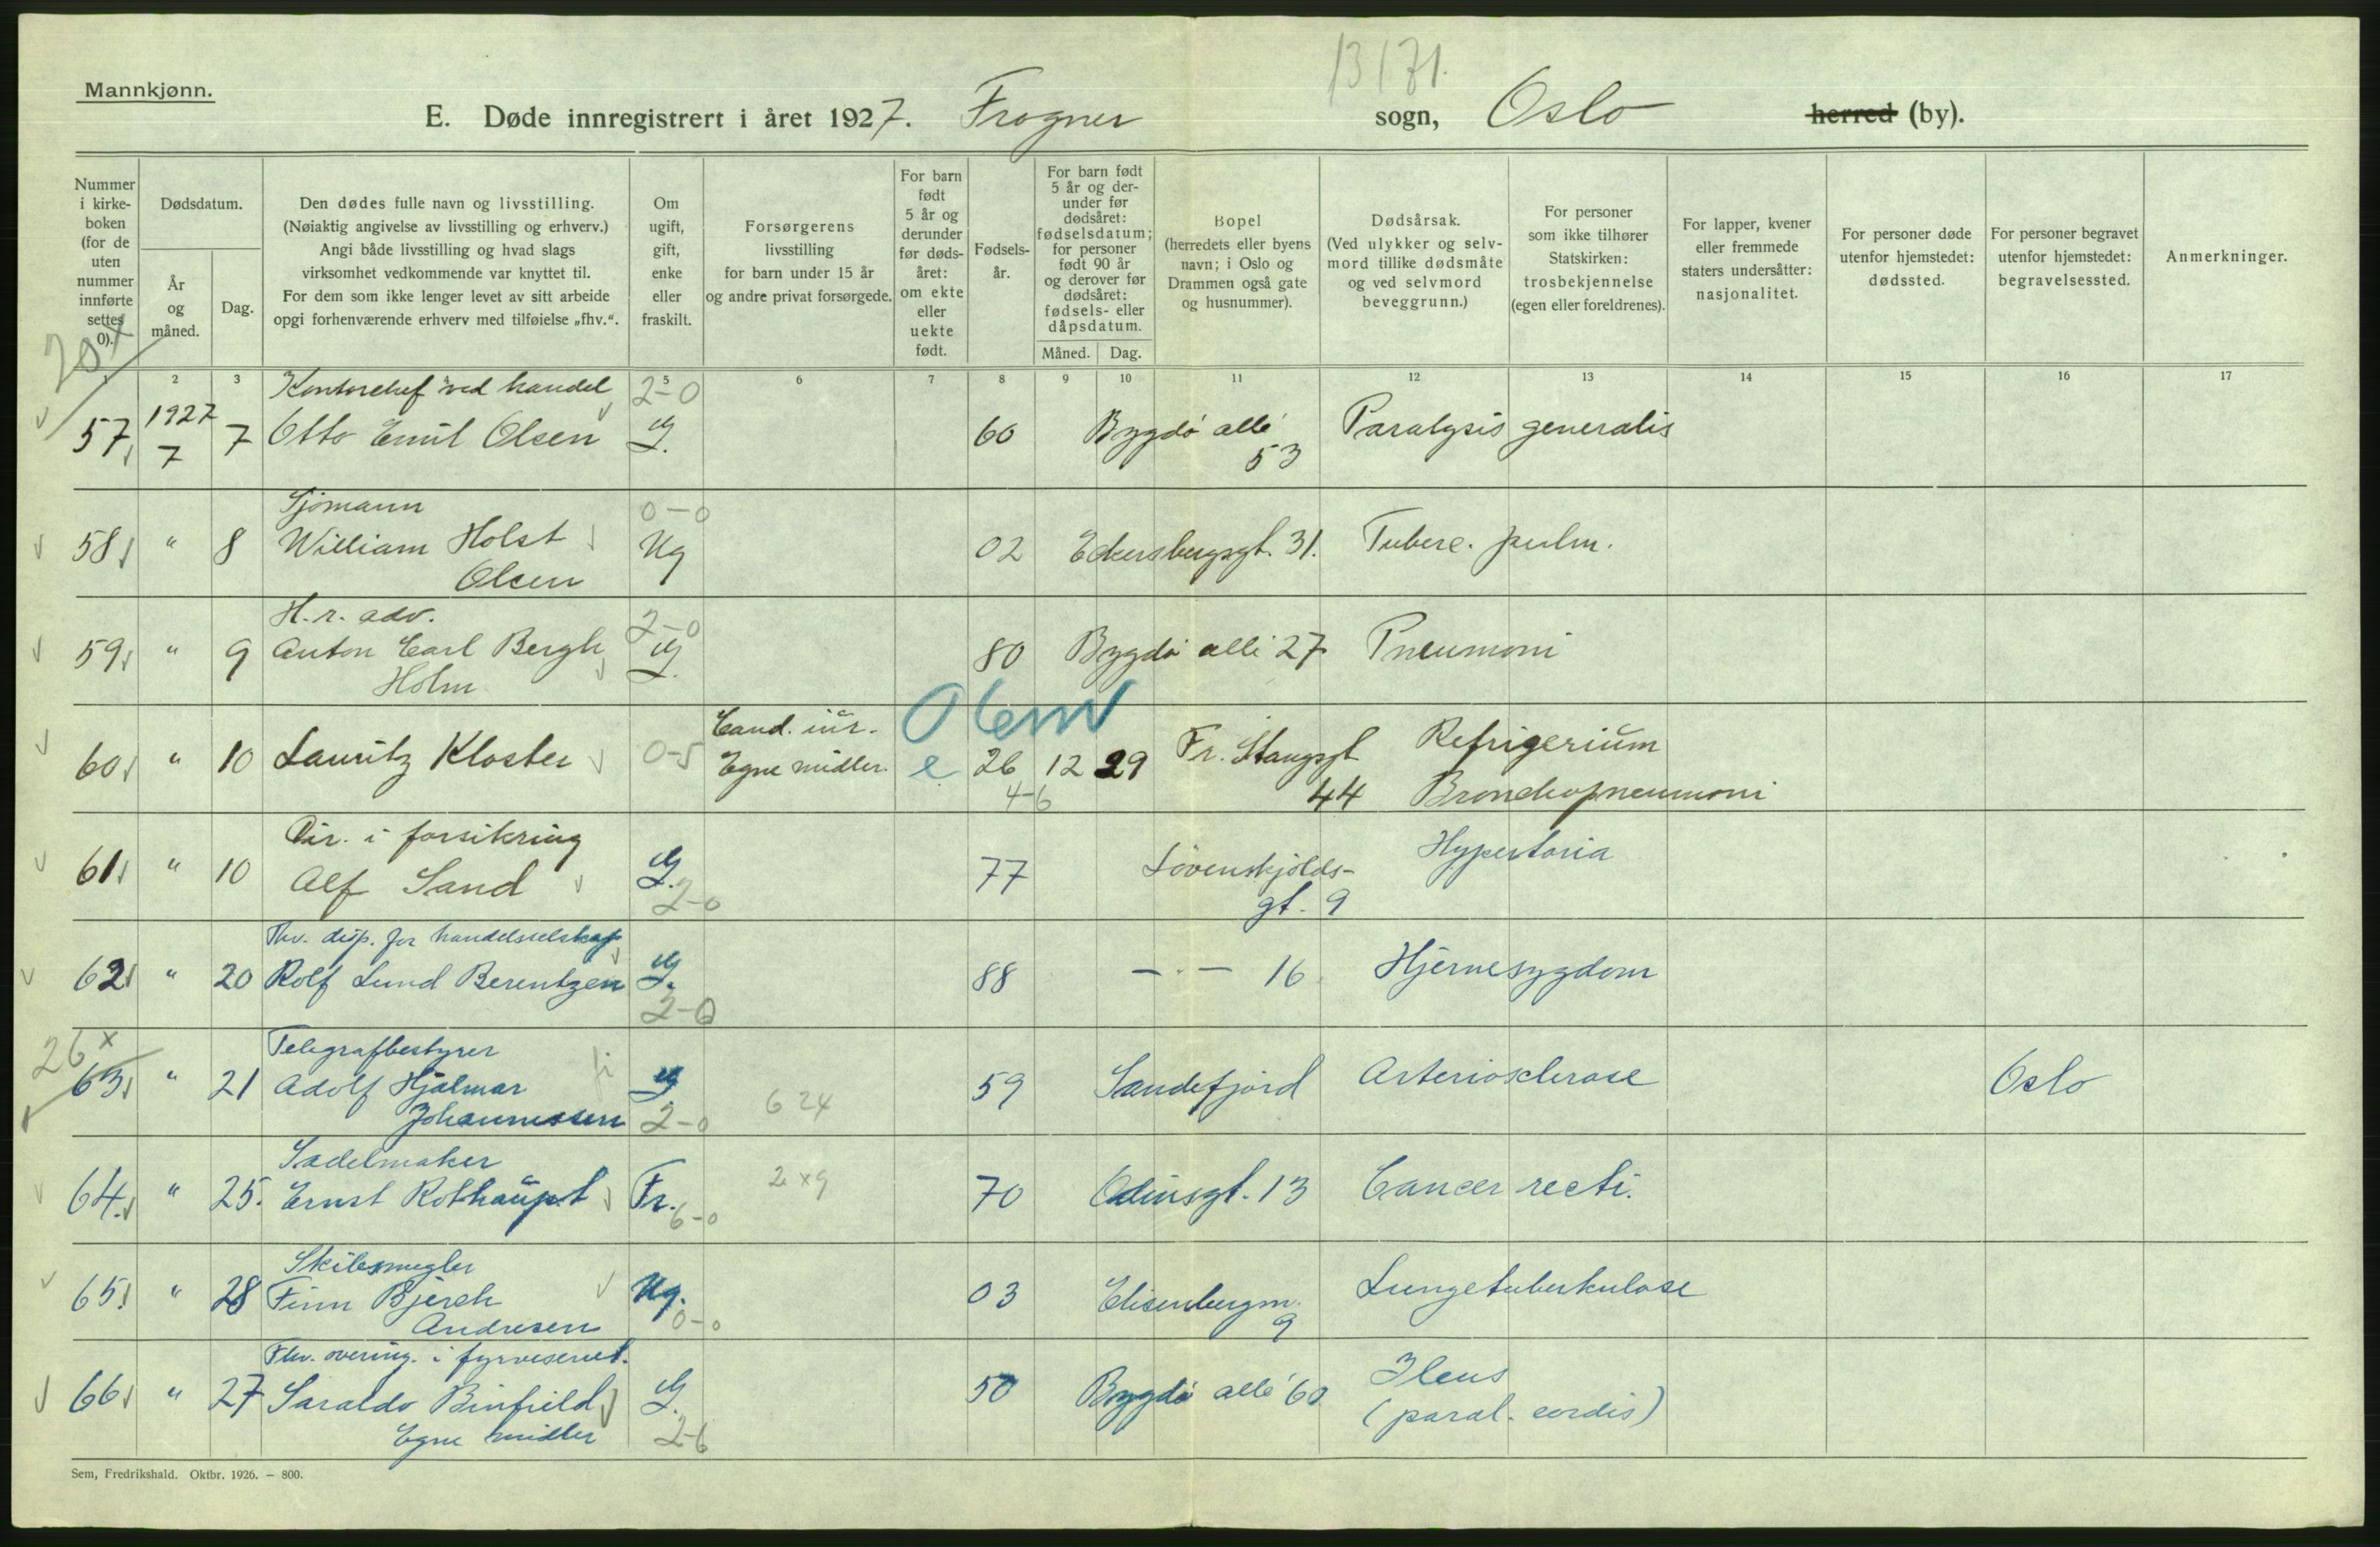 Mannkjønn.
13171.
E. Døde innregistrert i året 1927. Frogner sogn, Oslo herred (by).
Nummer i kirke-boken (for de uten nummer innførte settes 0).
Dødsdatum.
År og måned.
Dag.
Den dødes fulle navn og livsstilling.
(Nøiaktig angivelse av livsstilling og erhverv.)
Angi både livsstilling og hvad slags
virksomhet vedkommende var knyttet til.
For dem som ikke lenger levet av sitt arbeide
opgi forhenværende erhverv med tilføielse „fhv.“.
Om ugift, gift, enke eller fraskilt.
Forsørgerens
livsstilling
for barn under 15 år
og andre privat forsørgede.
For barn født 5 år og derunder før døds-året: om ekte eller uekte født.
Fødsels-år.
For barn født 5 år og der-under før dødsåret: fødselsdatum; for personer født 90 år og derover før dødsåret: fødsels- eller dåpsdatum.
Måned. Dag.
Bopel
(herredets eller byens navn; i Oslo og Drammen også gate og husnummer).
Dødsårsak.
(Ved ulykker og selv-mord tillike dødsmåte og ved selvmord beveggrunn.)
For personer som ikke tilhører Statskirken: trosbekjennelse (egen eller foreldrenes).
For lapper, kvener eller fremmede staters undersåtter: nasjonalitet.
For personer døde utenfor hjemstedet: dødssted.
For personer begravet utenfor hjemstedet: begravelsessted.
Anmerkninger.
20 x
2 3 5 6 7 8 9 10 11 12 13 14 15 16 17
Kontorchef ved handel 2-0
57 1927 7 7 Otto Emil Olsen G. 60 Bygdø allé 53 Paralysis generalis
Sjømann 0-0
58 " 8 William Holst Olsen Ug 02 Eckersbergsgt. 31. Tuberc. pulm.
H.r. adv. 2-0
59 " 9 Anton Carl Bergh Holm G. 80 Bygdø allé 27 Pneumoni
60 " 10 Lauritz Kloster 0-5 Cand. iur. Egne midler e 26 12 29 Fr. Stangsgt 44 Refrigerium Bronchopneumoni
4-6
Dir. i forsikring
61 " 10 Alf Sand G. 2-0 77 Løvenskjolds-gt. 9 Hypertonia
Fhv. disp. for handelsselskap
62 " 20 Rolf Lund Berentzen G. 2-0 88 - " - 16 Hjernesygdom
26 x
Telegrafbestyrer
63 " 21 Adolf Hjalmar Johannessen G. 2-0 6 24 59 Sandefjord Arteriosclerose Oslo
Sadelmaker
64. " 25. Ernst Rothaupt Fr. 6-0 2 x 9 70 Odinsgt. 13 Cancer recti.
Skibsmegler
65. " 28 Finn Bjerch Andresen Ug. 0-0 03 Elisenbergv. 9 Lungetuberkulose
Fhv. overing. i fyrvesenet.
66 " 27 Saraldo Binfield G. 2-6 50 Bygdø allé 60 Ileus
Egne midler (paral. cordis)
Sem, Fredrikshald. Oktbr. 1926. – 800.